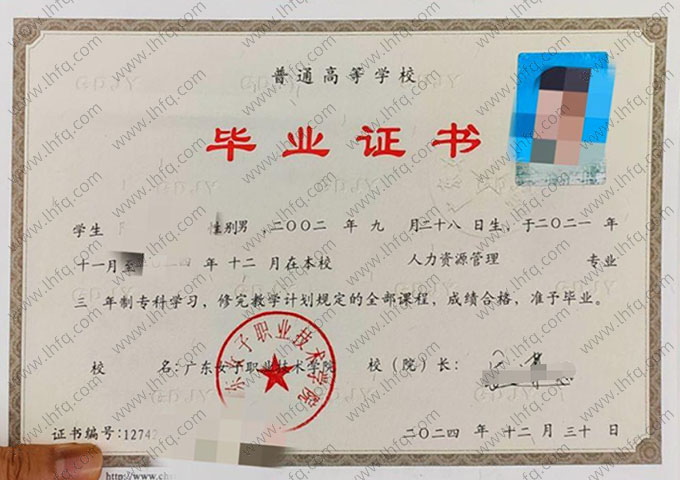 www.lhfq.com
普通高等学校
毕业证书
学生 性别男，二〇〇二 年 九 月二十八 日生，于二〇二一 年
十一月至 二四 年 十二 月在本校 人力资源管理 专业
三 年制专科学习，修完教学计划规定的全部课程，成绩合格，准予毕业。
校 名：广东女子职业技术学院 校（院）长：
广东女子职业技术学院
证书编号：12742
二〇二四 年 十二 月 三十 日
http://www.ch
GDJY